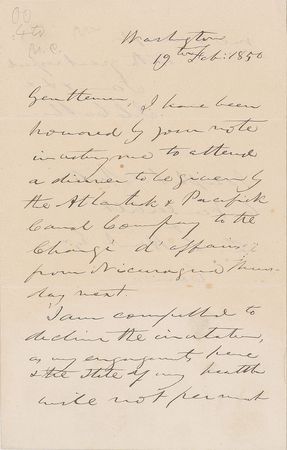 Washington
19th Feb: 1850
Gentlemen, I have been
honored by your note
inviting me to attend
a dinner to be given by
the Atlantick & Pacifick
Canal Company to the
Chargé d'affairs
from Nicaragua Thurs-
day next.
I am compelled to
decline the invitation,
as my engagements here
& the State of my health
will not permit